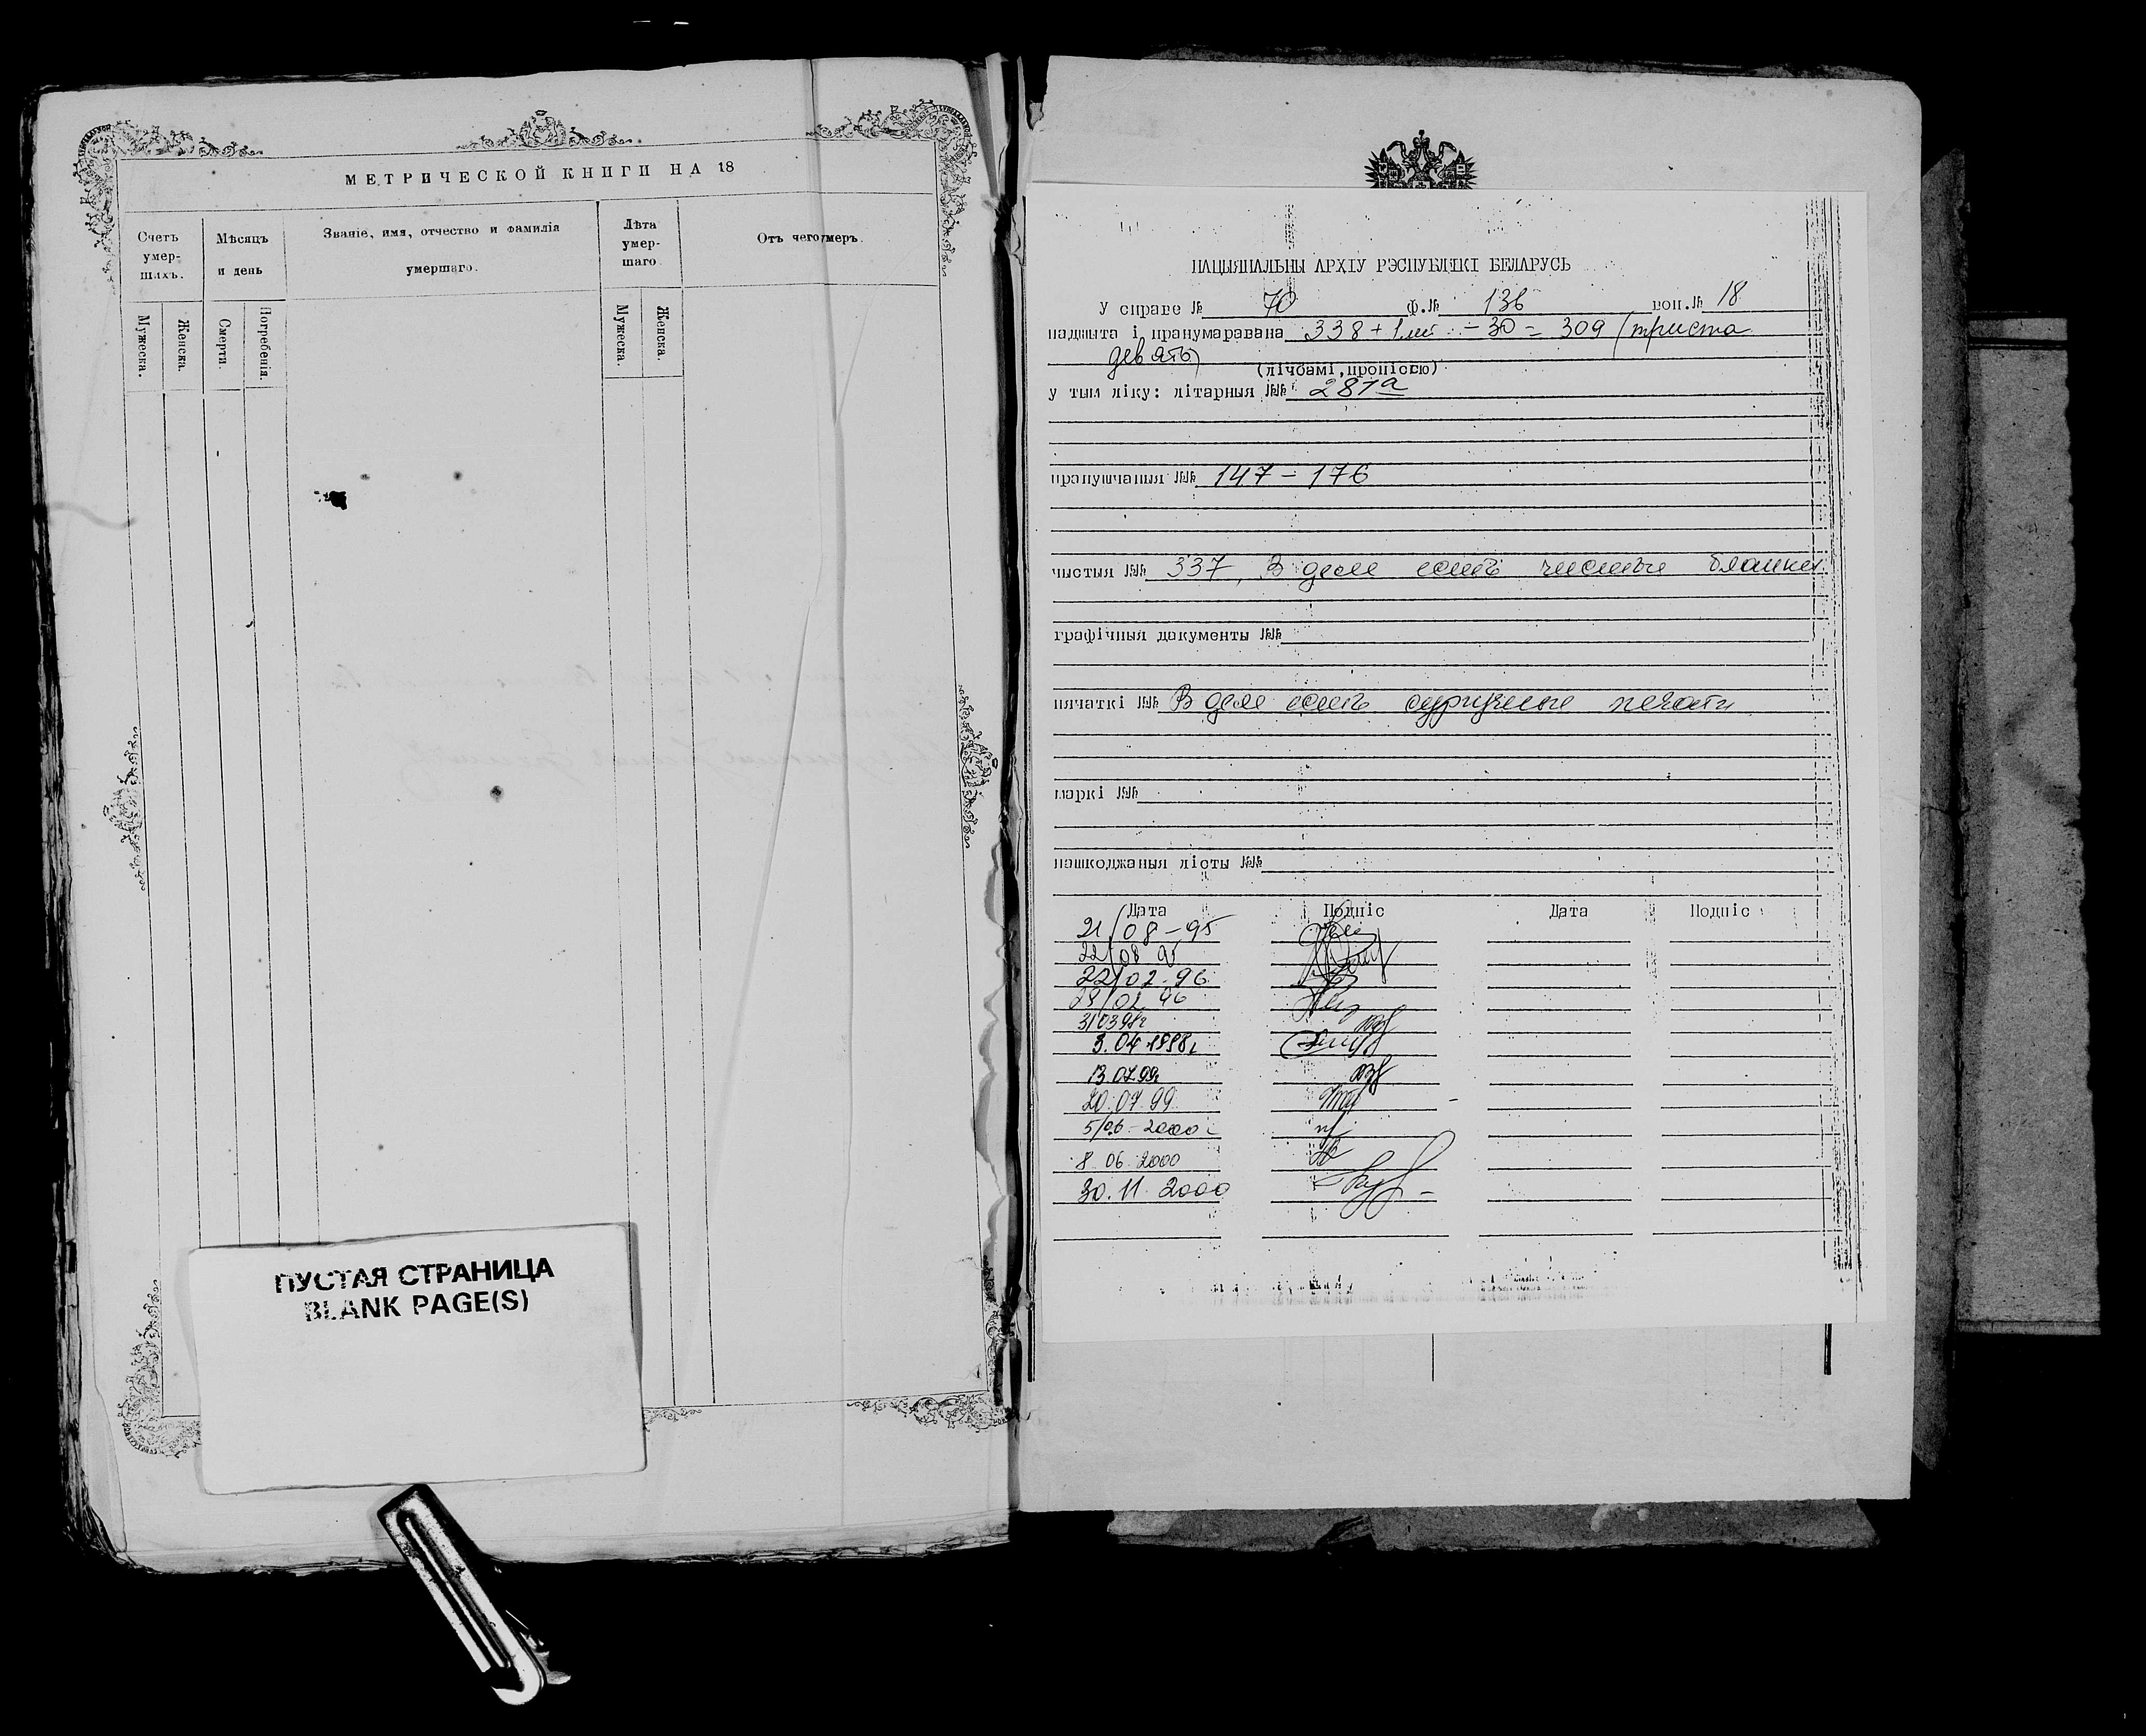 МЕТРИЧЕСКОЙ КНИГИ НА 18
Счетъ умер-шихъ.
Мѣсяцъ и день
Званіе, имя, отчество и фамилія умершаго.
Лѣта умер-шаго
Отъ чего умеръ.
Мужеска.
Женска.
Смерти.
Погребенія.
Мужеска.
Женска.
ПУСТАЯ СТРАНИЦА
BLANK PAGE(S)
НАЦЫЯНАЛЬНЫ АРХІУ РЭСПУБЛІКІ БЕЛАРУСЬ
У справе № 70 Ф.№ 136 воп.№ 18
падшыта і пранумаравана 338 + 1 лит - 30 = 309 (триста
девять)
(лічбамі, пропіссю)
у тым ліку: літарныя №№ 281а
прапушчаныя №№ 147 - 176
чыстыя №№ 337, В деле есть чистые бланки.
графічныя дакументы №№
пячаткі №№ В деле есть сургучные печати
маркі №№
пашкоджаныя лісты №№
Дата Подпіс Дата Подпіс
21/08-95
22/08 95
22/02-96
29/02 96
31 03 98г
3.04 1998г
13.07.99г
20.07.99
5/06-2000г
8 06 2000
30.11.2000